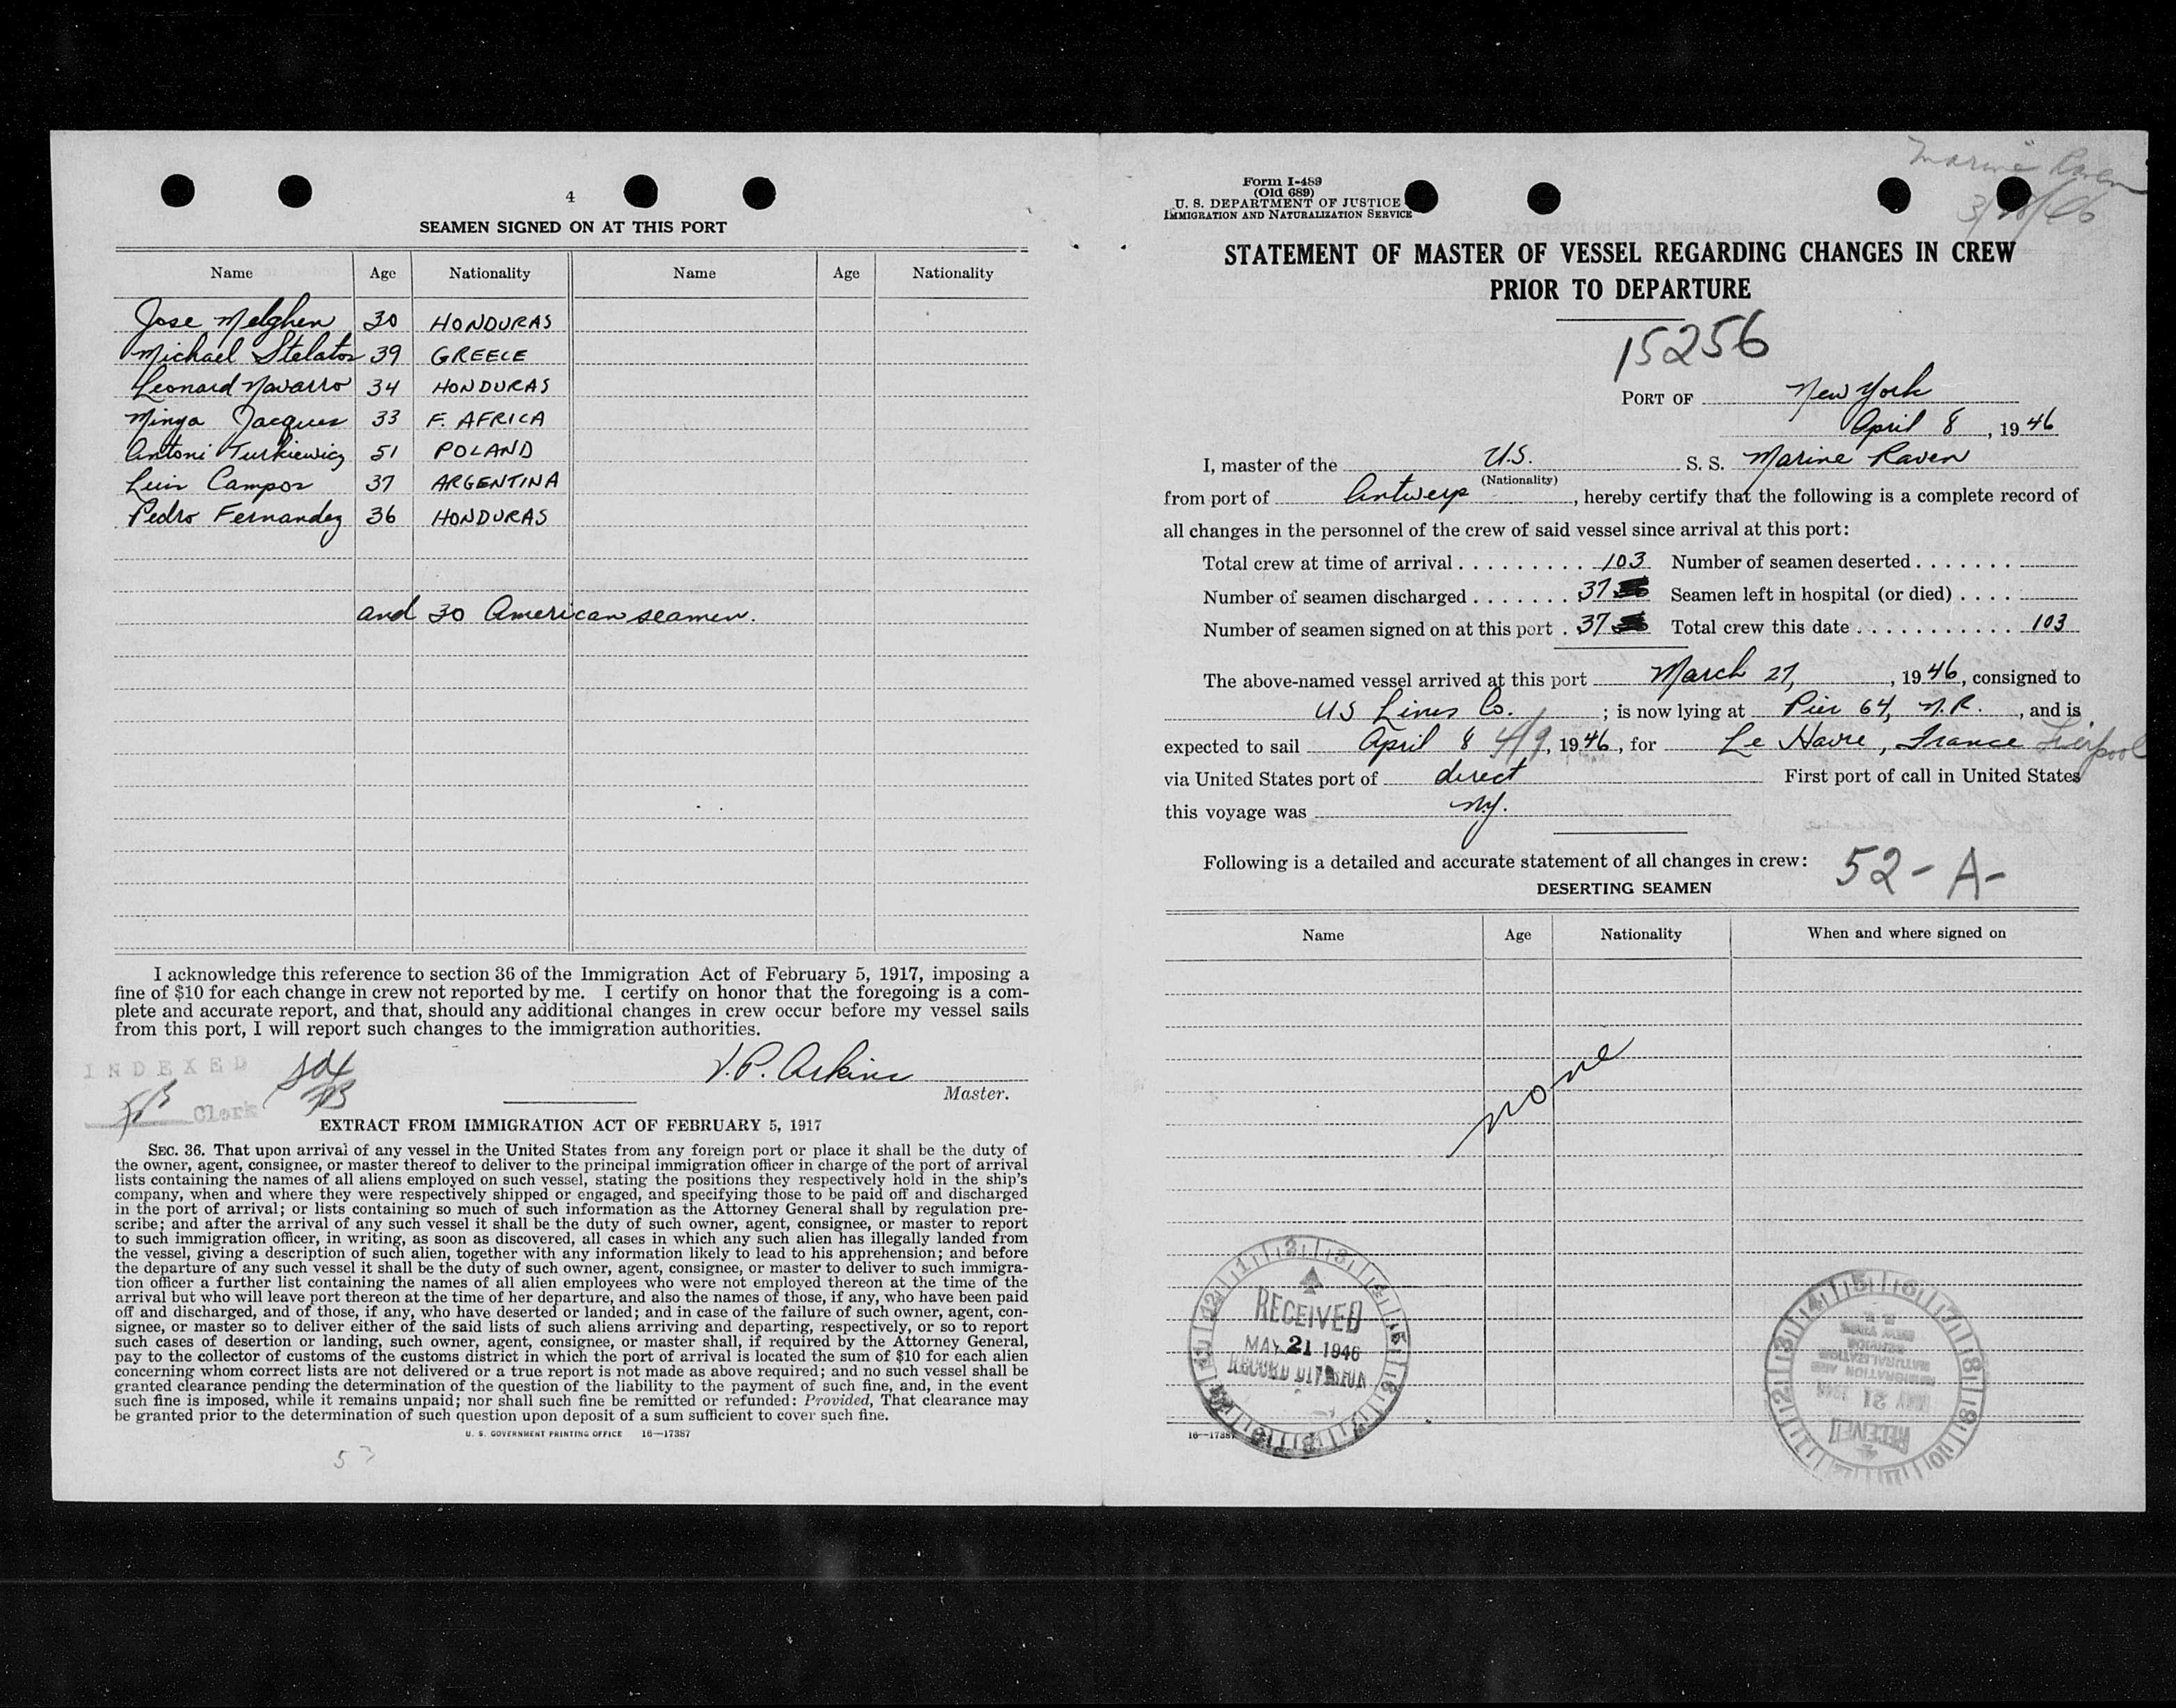 4
SEAMEN SIGNED ON AT THIS PORT
Name Age Nationality Name Age Nationality
Jose Melghen 30 HONDURAS
Michael Stelatos 39 GREECE
Leonard Navarro 34 HONDURAS
Minga Jacques 33 F. AFRICA
Antoni Turkiewicz 51 POLAND
Luis Campos 37 ARGENTINA
Pedro Fernandez 36 HONDURAS
and 30 American seamen.
I acknowledge this reference to section 36 of the Immigration Act of February 5, 1917, imposing a
fine of $10 for each change in crew not reported by me. I certify on honor that the foregoing is a com-
plete and accurate report, and that, should any additional changes in crew occur before my vessel sails
from this port, I will report such changes to the immigration authorities.
INDEXED
Clerk
V. P. Arkins
Master.
EXTRACT FROM IMMIGRATION ACT OF FEBRUARY 5, 1917
SEC. 36. That upon arrival of any vessel in the United States from any foreign port or place it shall be the duty of
the owner, agent, consignee, or master thereof to deliver to the principal immigration officer in charge of the port of arrival
lists containing the names of all aliens employed on such vessel, stating the positions they respectively hold in the ship's
company, when and where they were respectively shipped or engaged, and specifying those to be paid off and discharged
in the port of arrival; or lists containing so much of such information as the Attorney General shall by regulation pre-
scribe; and after the arrival of any such vessel it shall be the duty of such owner, agent, consignee, or master to report
to such immigration officer, in writing, as soon as discovered, all cases in which any such alien has illegally landed from
the vessel, giving a description of such alien, together with any information likely to lead to his apprehension; and before
the departure of any such vessel it shall be the duty of such owner, agent, consignee, or master to deliver to such immigra-
tion officer a further list containing the names of all alien employees who were not employed thereon at the time of the
arrival but who will leave port thereon at the time of her departure, and also the names of those, if any, who have been paid
off and discharged, and of those, if any, who have deserted or landed; and in case of the failure of such owner, agent, con-
signee, or master so to deliver either of the said lists of such aliens arriving and departing, respectively, or so to report
such cases of desertion or landing, such owner, agent, consignee, or master shall, if required by the Attorney General,
pay to the collector of customs of the customs district in which the port of arrival is located the sum of $10 for each alien
concerning whom correct lists are not delivered or a true report is not made as above required; and no such vessel shall be
granted clearance pending the determination of the question of the liability to the payment of such fine, and, in the event
such fine is imposed, while it remains unpaid; nor shall such fine be remitted or refunded: Provided, That clearance may
be granted prior to the determination of such question upon deposit of a sum sufficient to cover such fine.
U. S. GOVERNMENT PRINTING OFFICE 16—17387
53
Marine Raven
Form I-489
(Old 689)
U. S. DEPARTMENT OF JUSTICE
IMMIGRATION AND NATURALIZATION SERVICE
STATEMENT OF MASTER OF VESSEL REGARDING CHANGES IN CREW
PRIOR TO DEPARTURE
15256
PORT OF New York
April 8, 1946
I, master of the U.S. S. S. Marine Raven
(Nationality)
from port of Antwerp, hereby certify that the following is a complete record of
all changes in the personnel of the crew of said vessel since arrival at this port:
Total crew at time of arrival . . . . . . . . . . 103 Number of seamen deserted . . . . . . .
Number of seamen discharged . . . . . . . 37 Seamen left in hospital (or died) . . . .
Number of seamen signed on at this port . 37 Total crew this date . . . . . . . . . . . . 103
The above-named vessel arrived at this port March 27, , 1946, consigned to
US Lines Co. ; is now lying at Pier 64, N.R. , and is
expected to sail April 8 4/9, 1946, for Le Havre, France Liverpool
via United States port of direct First port of call in United States
this voyage was N.Y.
Following is a detailed and accurate statement of all changes in crew: 52-A-
DESERTING SEAMEN
Name Age Nationality When and where signed on
none
RECEIVED
MAY 21 1946
RECORD DIVISION
RECEIVED
MAY 21 1946
IMMIGRATION AND
NATURALIZATION
SERVICE
NEW YORK
16—1738